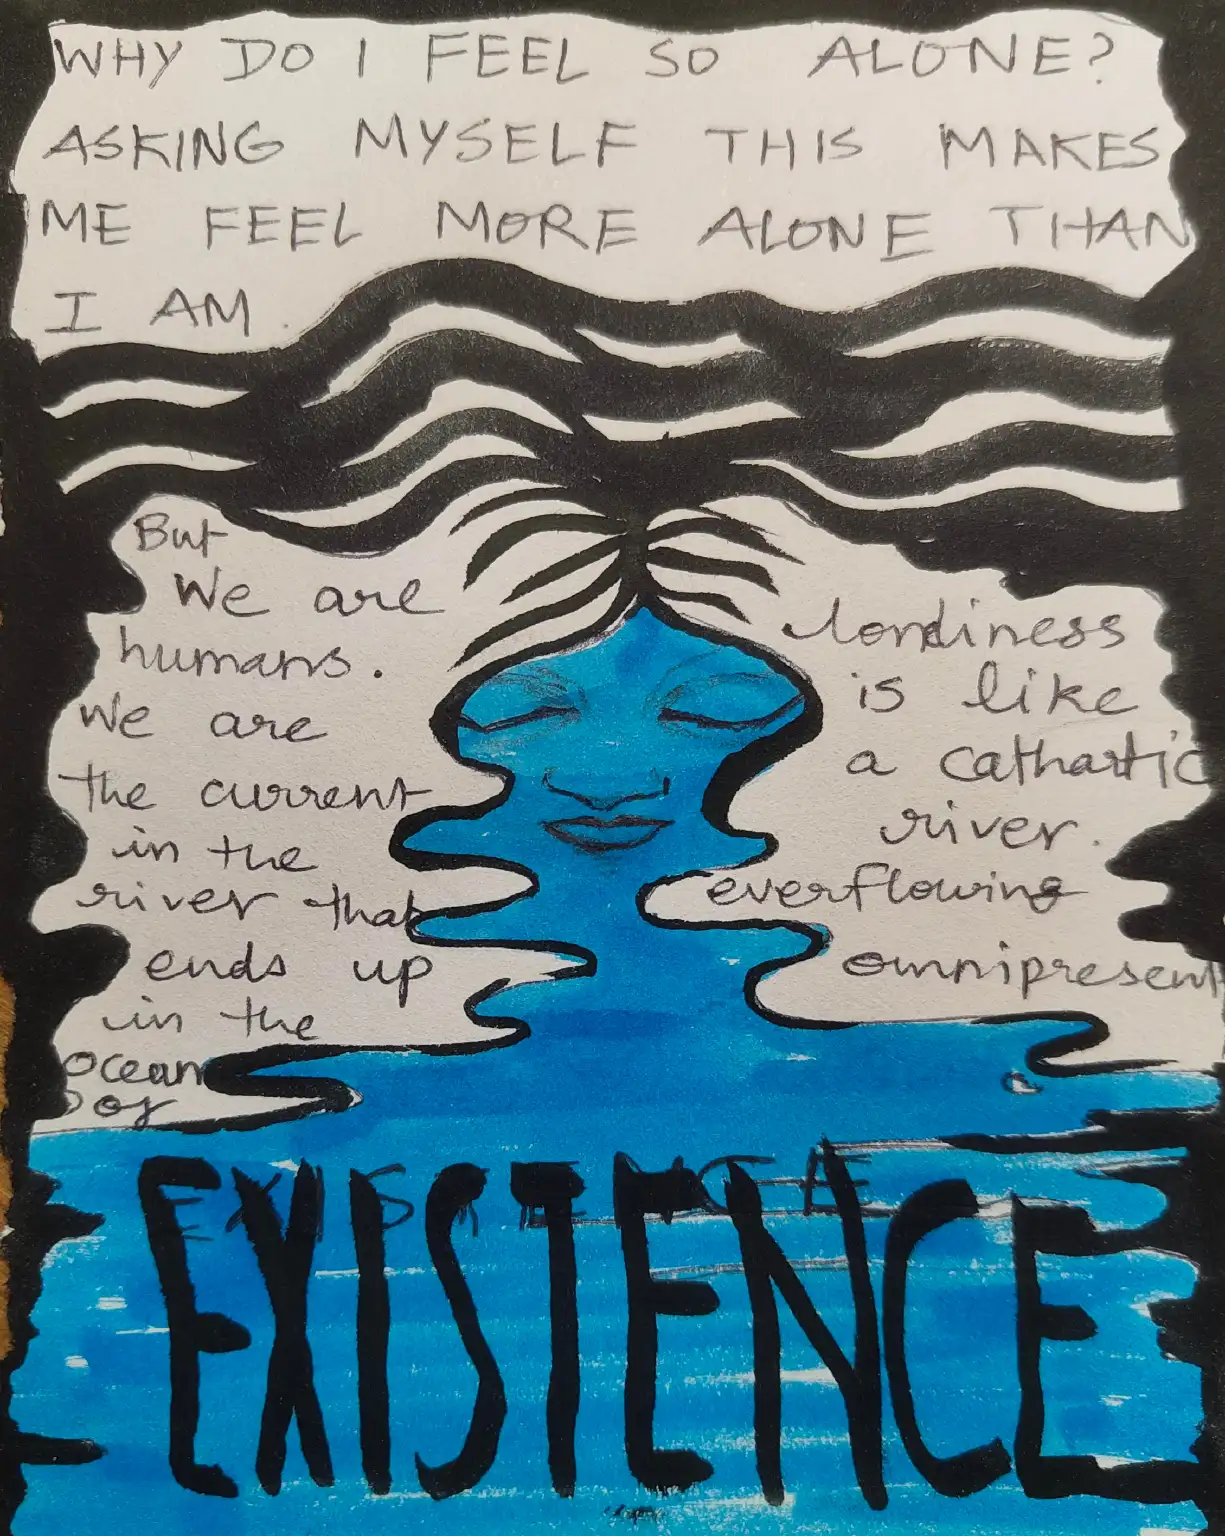 WHY DO I FEEL SO ALONE?
ASKING MYSELF THIS MAKES
ME FEEL MORE ALONE THAN
I AM.
But
We are
humans.
We are
the current
in the
river that
ends up
in the
ocean
of
loneliness
is like
a cathartic
river.
everflowing
omnipresent
EXISTENCE
EXISTENCE